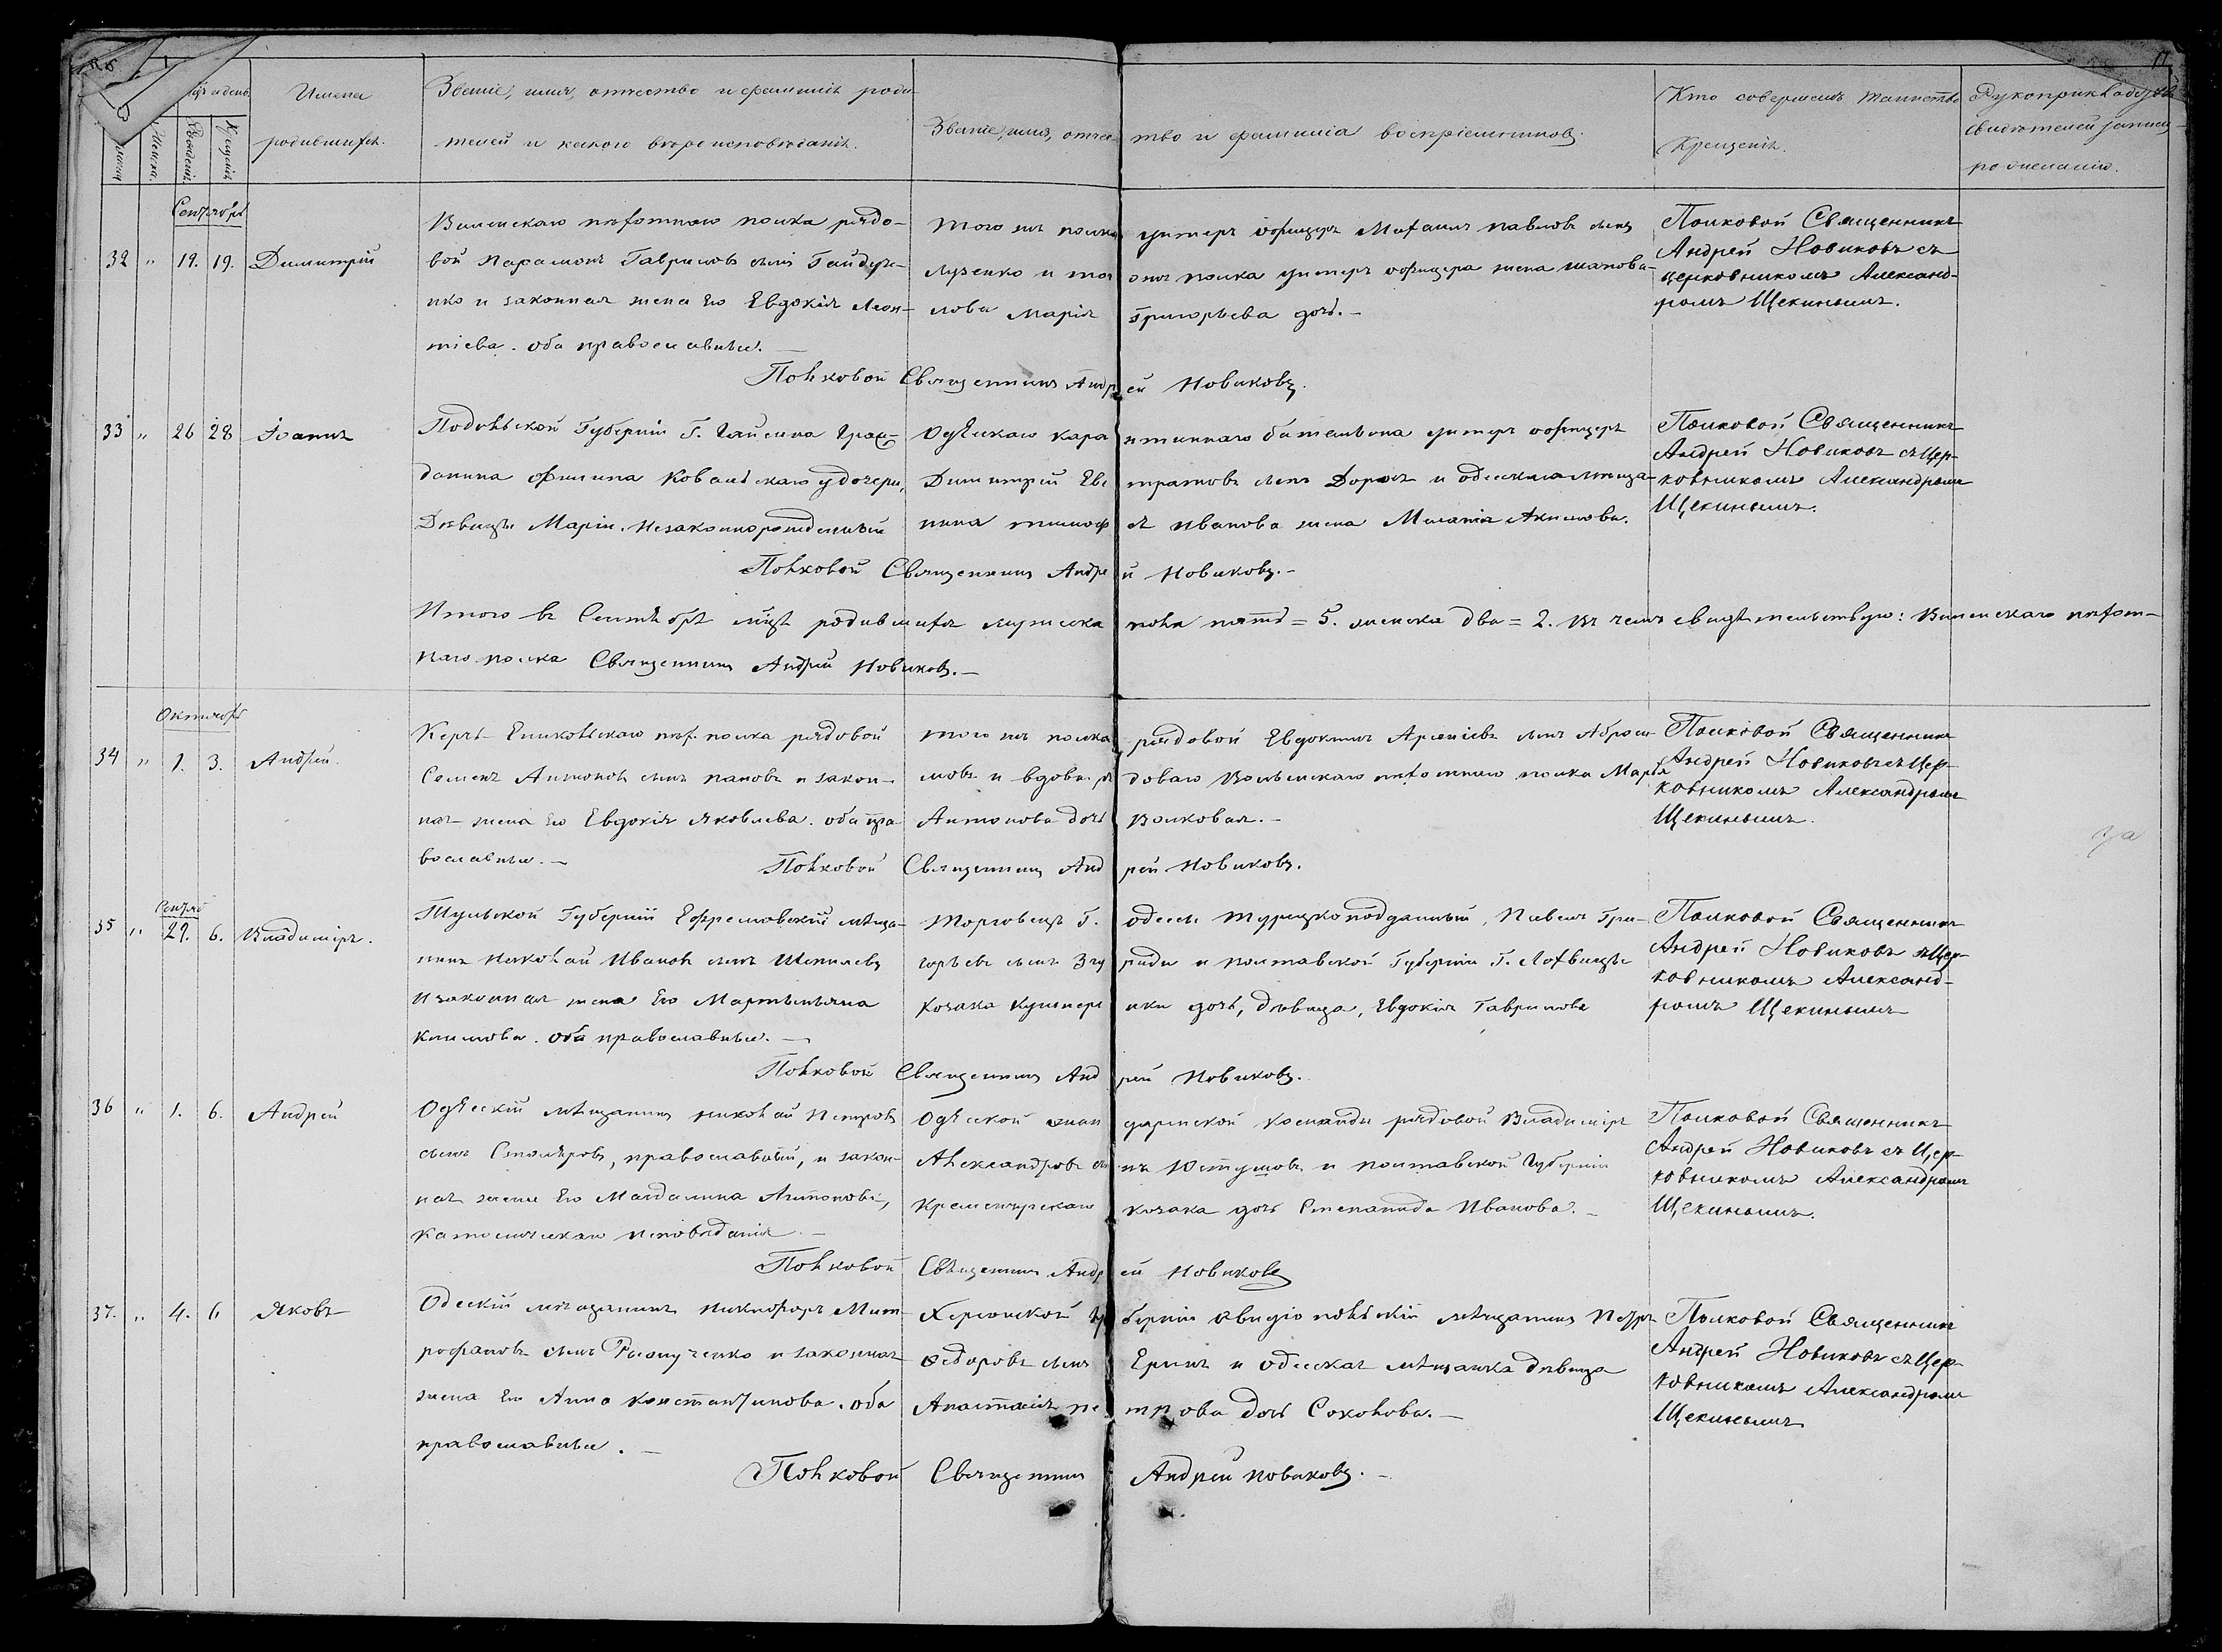 17
Имена
родившихся.
Званіе, имя, отчество и фамилія роди-
телей и какого вѣроисповѣданія.
Званіе, имя, отчество и фамилія воспріемниковъ.
Кто совершалъ таинство
Крещенія.
Рукоприкладство
свидѣтелей записи
по желанію.
Женска.
Рожденія
Крещенія
Сентябрь
32 " 19. 19. Димитрій
Виленскаго пѣхотнаго полка рядо-
вой Парамонъ Гавриловъ сынъ Гайдуче-
нко и законная жена его Евдокія Леон-
тіева. оба православные.
того же полка унтеръ офицеръ Михаилъ Павловъ сынъ
онъ полка унтеръ офицера жена Шапова-
лова Марія Григорьева дочь.
Полковой Священникъ
Андрей Новиковъ съ
церковникомъ Александ-
ромъ Щекинымъ.
Полковой Священникъ Андрей Новиковъ.
33 " 26 28 Іоаннъ
Подольской Губерніи Г. Гайсина Граж-
данина Филипа Ковальскаго у дочери,
Дѣвицы Маріи. Незаконнорожденный
Одесскаго карантиннаго баталіона унтеръ офицеръ
Димитрій Евстратовъ сынъ и одесскаго мѣща-
нина Иванова жена Меланія Акимова.
Полковой Священникъ
Андрей Новиковъ съ Цер-
ковникомъ Александромъ
Щекинымъ.
Полковой Священникъ Андрей Новиковъ.
Итого въ Сентябрѣ мцѣ родившихся мужеска пола пять = 5. женска два = 2. въ чемъ свидѣтельствую: Виленскаго пѣхот-
наго полка Священникъ Андрей Новиковъ.
Октябрь
34 " 1. 3. Андрей.
Керчь Ениколскаго пѣх. полка рядовой
Семенъ Антоновъ сынъ Пановъ и закон-
ная жена его Евдокія Яковлева. оба пра-
вославные.
того же полка рядовой Евдокимъ Арсеніевъ сынъ Аброси-
мовъ и вдова рядоваго Волынскаго пѣхотнаго полка Марѳа
Антонова дочь Волковая.
Полковой Священникъ
Андрей Новиковъ съ Цер-
ковникомъ Александромъ
Щекинымъ.
Полковой Священникъ Андрей Новиковъ.
за
Сентяб
35 " 29. 6. Владиміръ.
Тульской Губерніи Ефремовскій мѣща-
нинъ Николай Ивановъ сынъ Шепилевъ
и законная жена его Мартемьяна
Климова. оба православные.
Торговецъ Г. Одессы турецкоподданный, Павелъ Гри-
горьевъ сынъ и полтавской Губерніи Г. Лохвицы
козака дочь, дѣвица, Евдокія Гаврилова
Полковой Священникъ
Андрей Новиковъ съ Цер-
ковникомъ Александ-
ромъ Щекинымъ
Полковой Священникъ Андрей Новиковъ.
36 " 1. 6. Андрей
Одесскій мѣщанинъ Николай Петровъ
сынъ Столяровъ, православный, и закон-
ная жена его Магдалина Антонова,
католическаго исповѣданія.
Одесской жандармской команды рядовой Владиміръ
Александровъ сынъ Юстушовъ и полтавской Губерніи
Кременчугскаго козака дочь Степанида Иванова.
Полковой Священникъ
Андрей Новиковъ съ Цер-
ковникомъ Александромъ
Щекинымъ.
Полковой Священникъ Андрей Новиковъ
37. " 4. 6 Яковъ
Одесскій мѣщанинъ Никифоръ Мит-
рофановъ сынъ и законная
жена его Анна Константинова. оба
православные.
Херсонской Губерніи овидіопольскій мѣщанинъ Петръ
Ѳедоровъ сынъ и одесская мѣщанка дѣвица
Анастасія Петрова дочь Соколова.
Полковой Священникъ
Андрей Новиковъ съ Цер-
ковникомъ Александромъ
Щекинымъ
Полковой Священникъ Андрей Новиковъ.